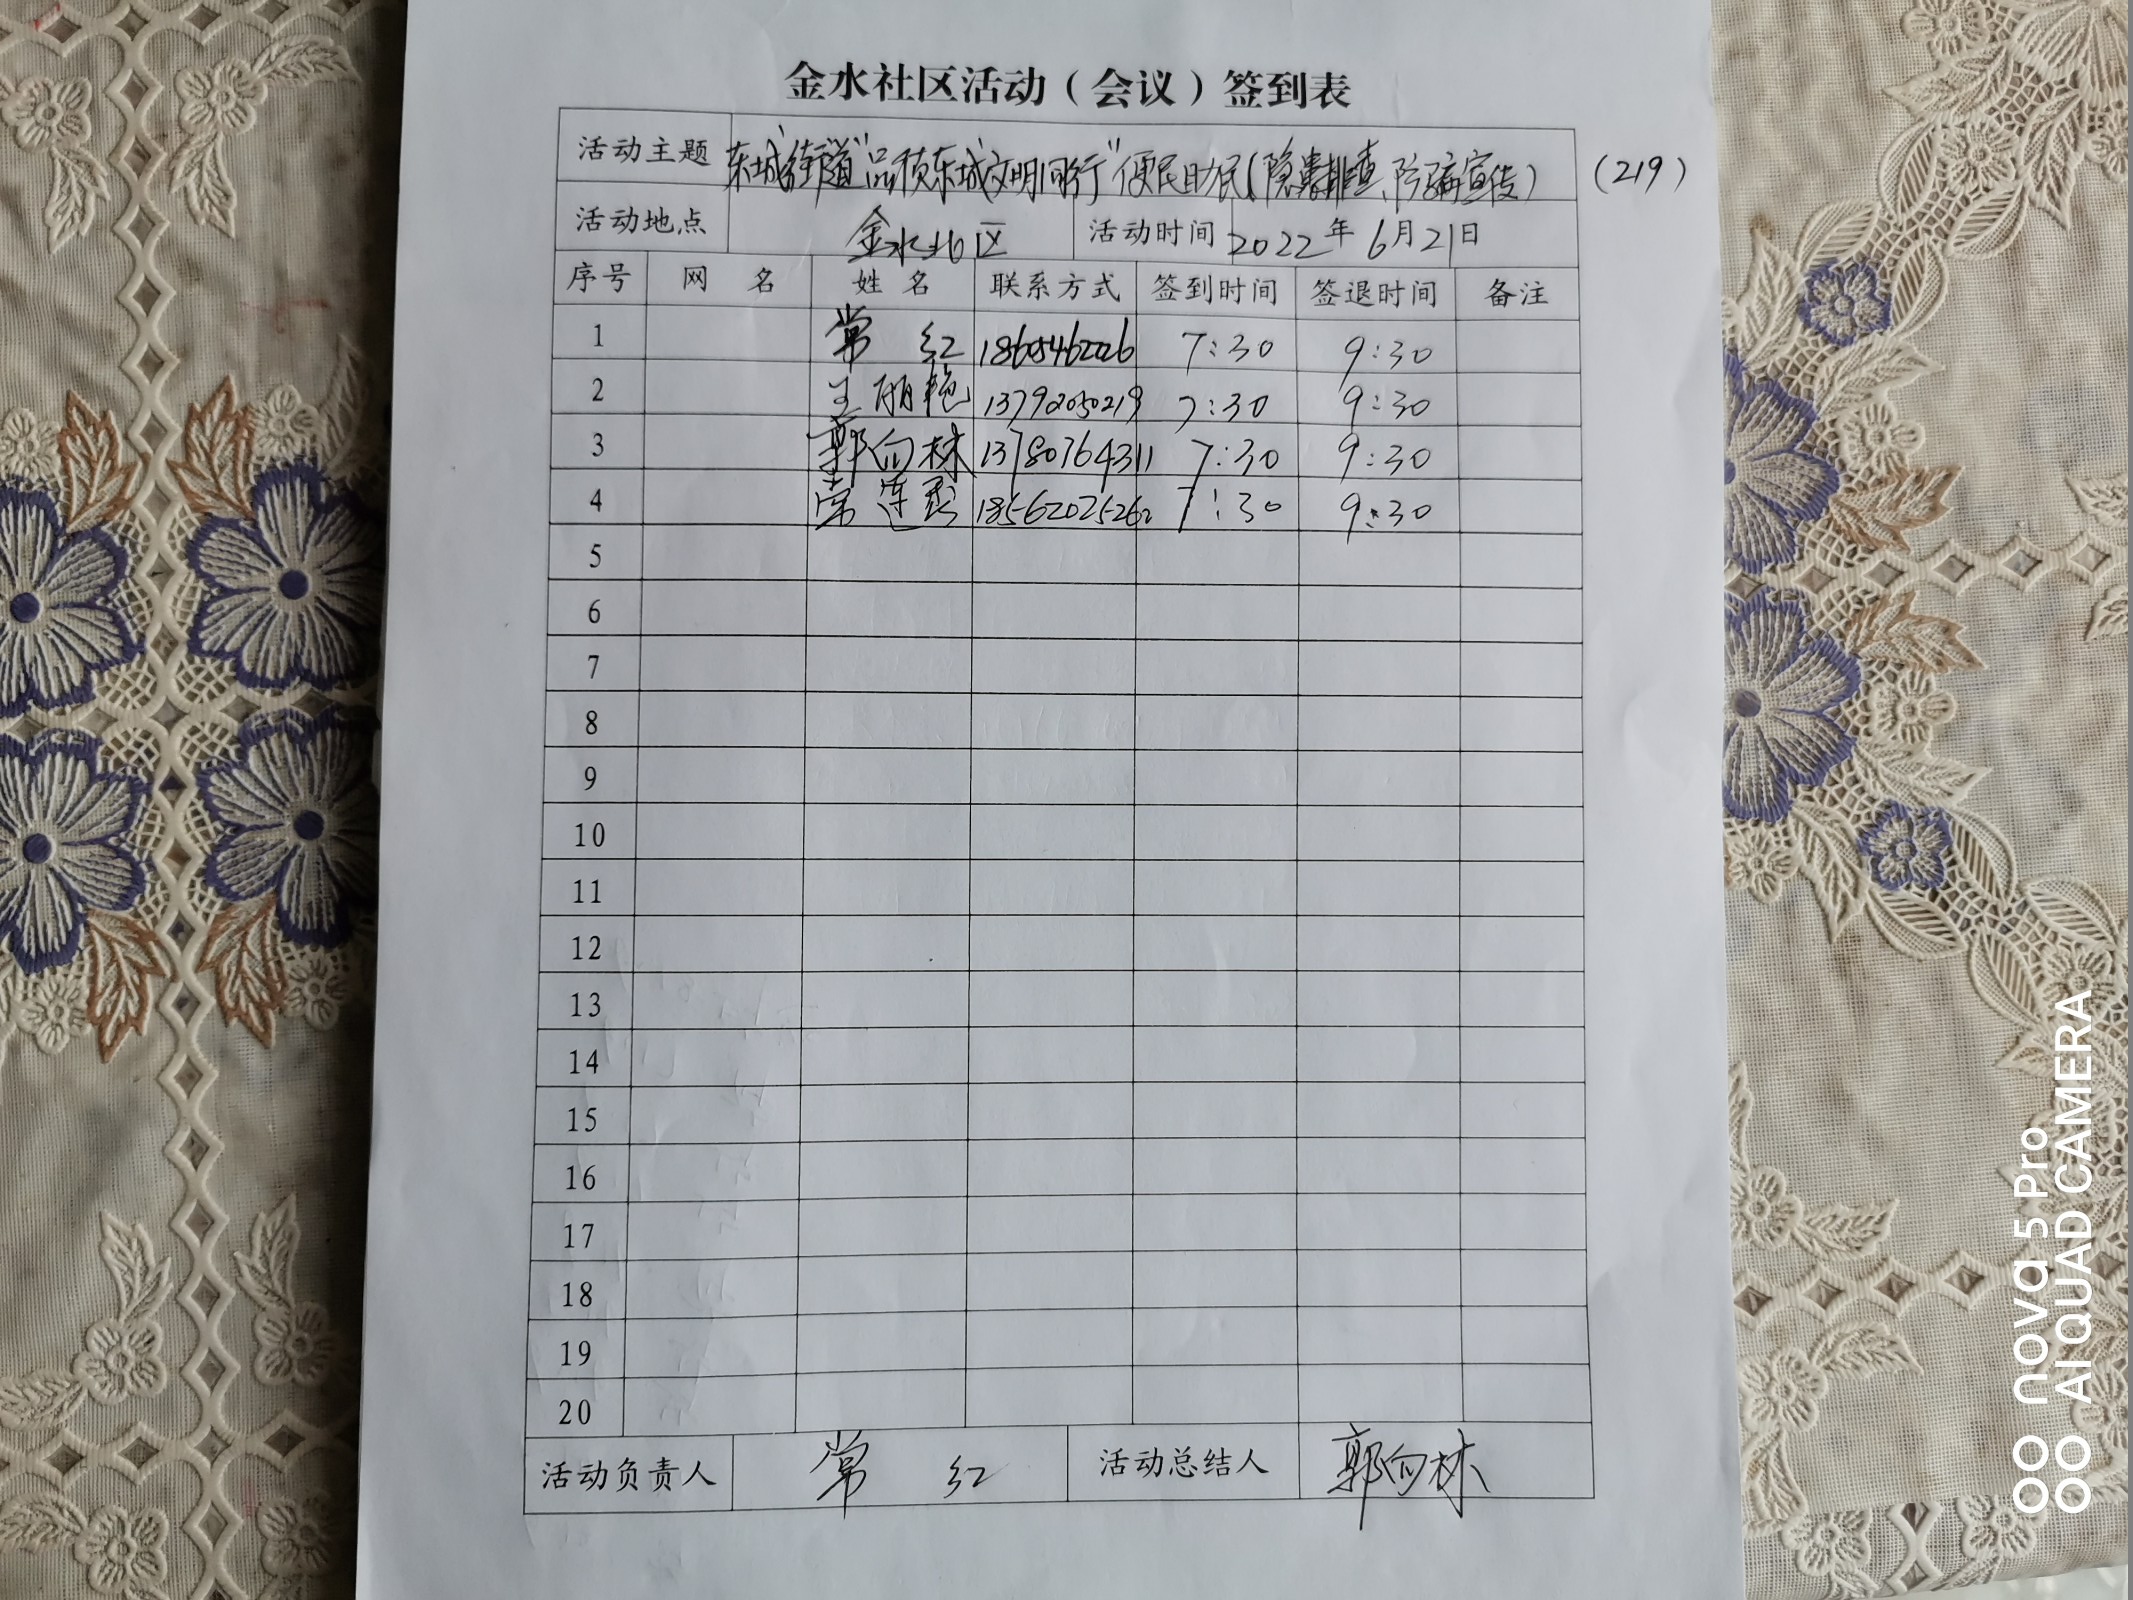 金水社区活动（会议）签到表
活动主题 东城街道“品质东城文明同行”便民助民(隐患排查、防病宣传) (219)
活动地点 金水北区 活动时间 2022年6月21日
序号 网 名 姓 名 联系方式 签到时间 签退时间 备注
1 常 红 7:30 9:30
2 王丽艳 13792050219 7:30 9:30
3 郭向林 13780764311 7:30 9:30
4 常莲 18562025262 7:30 9:30
5
6
7
8
9
10
11
12
13
14
15
16
17
18
19
20
活动负责人 常 红 活动总结人 郭向林
nova 5 Pro
AI QUAD CAMERA